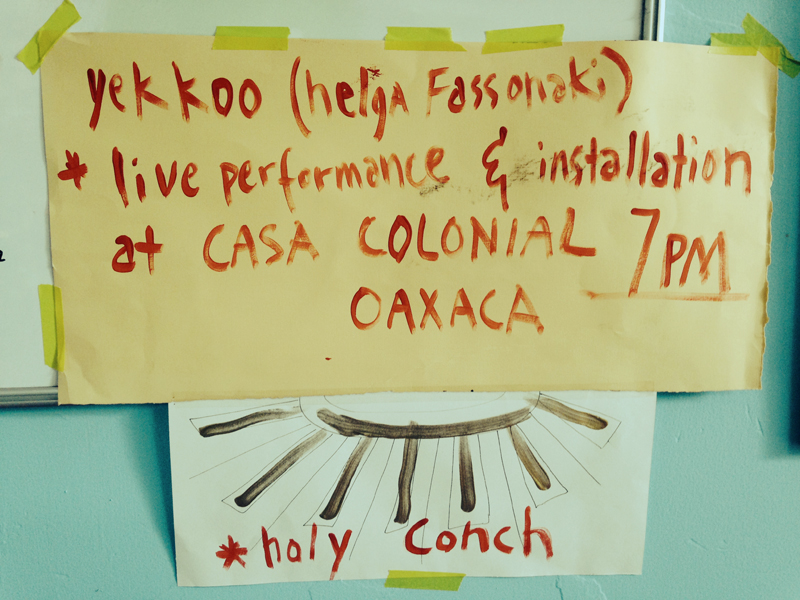 yekkoo (helga Fassonaki)
* live performance & installation
at CASA COLONIAL 7PM
OAXACA
*holy conch